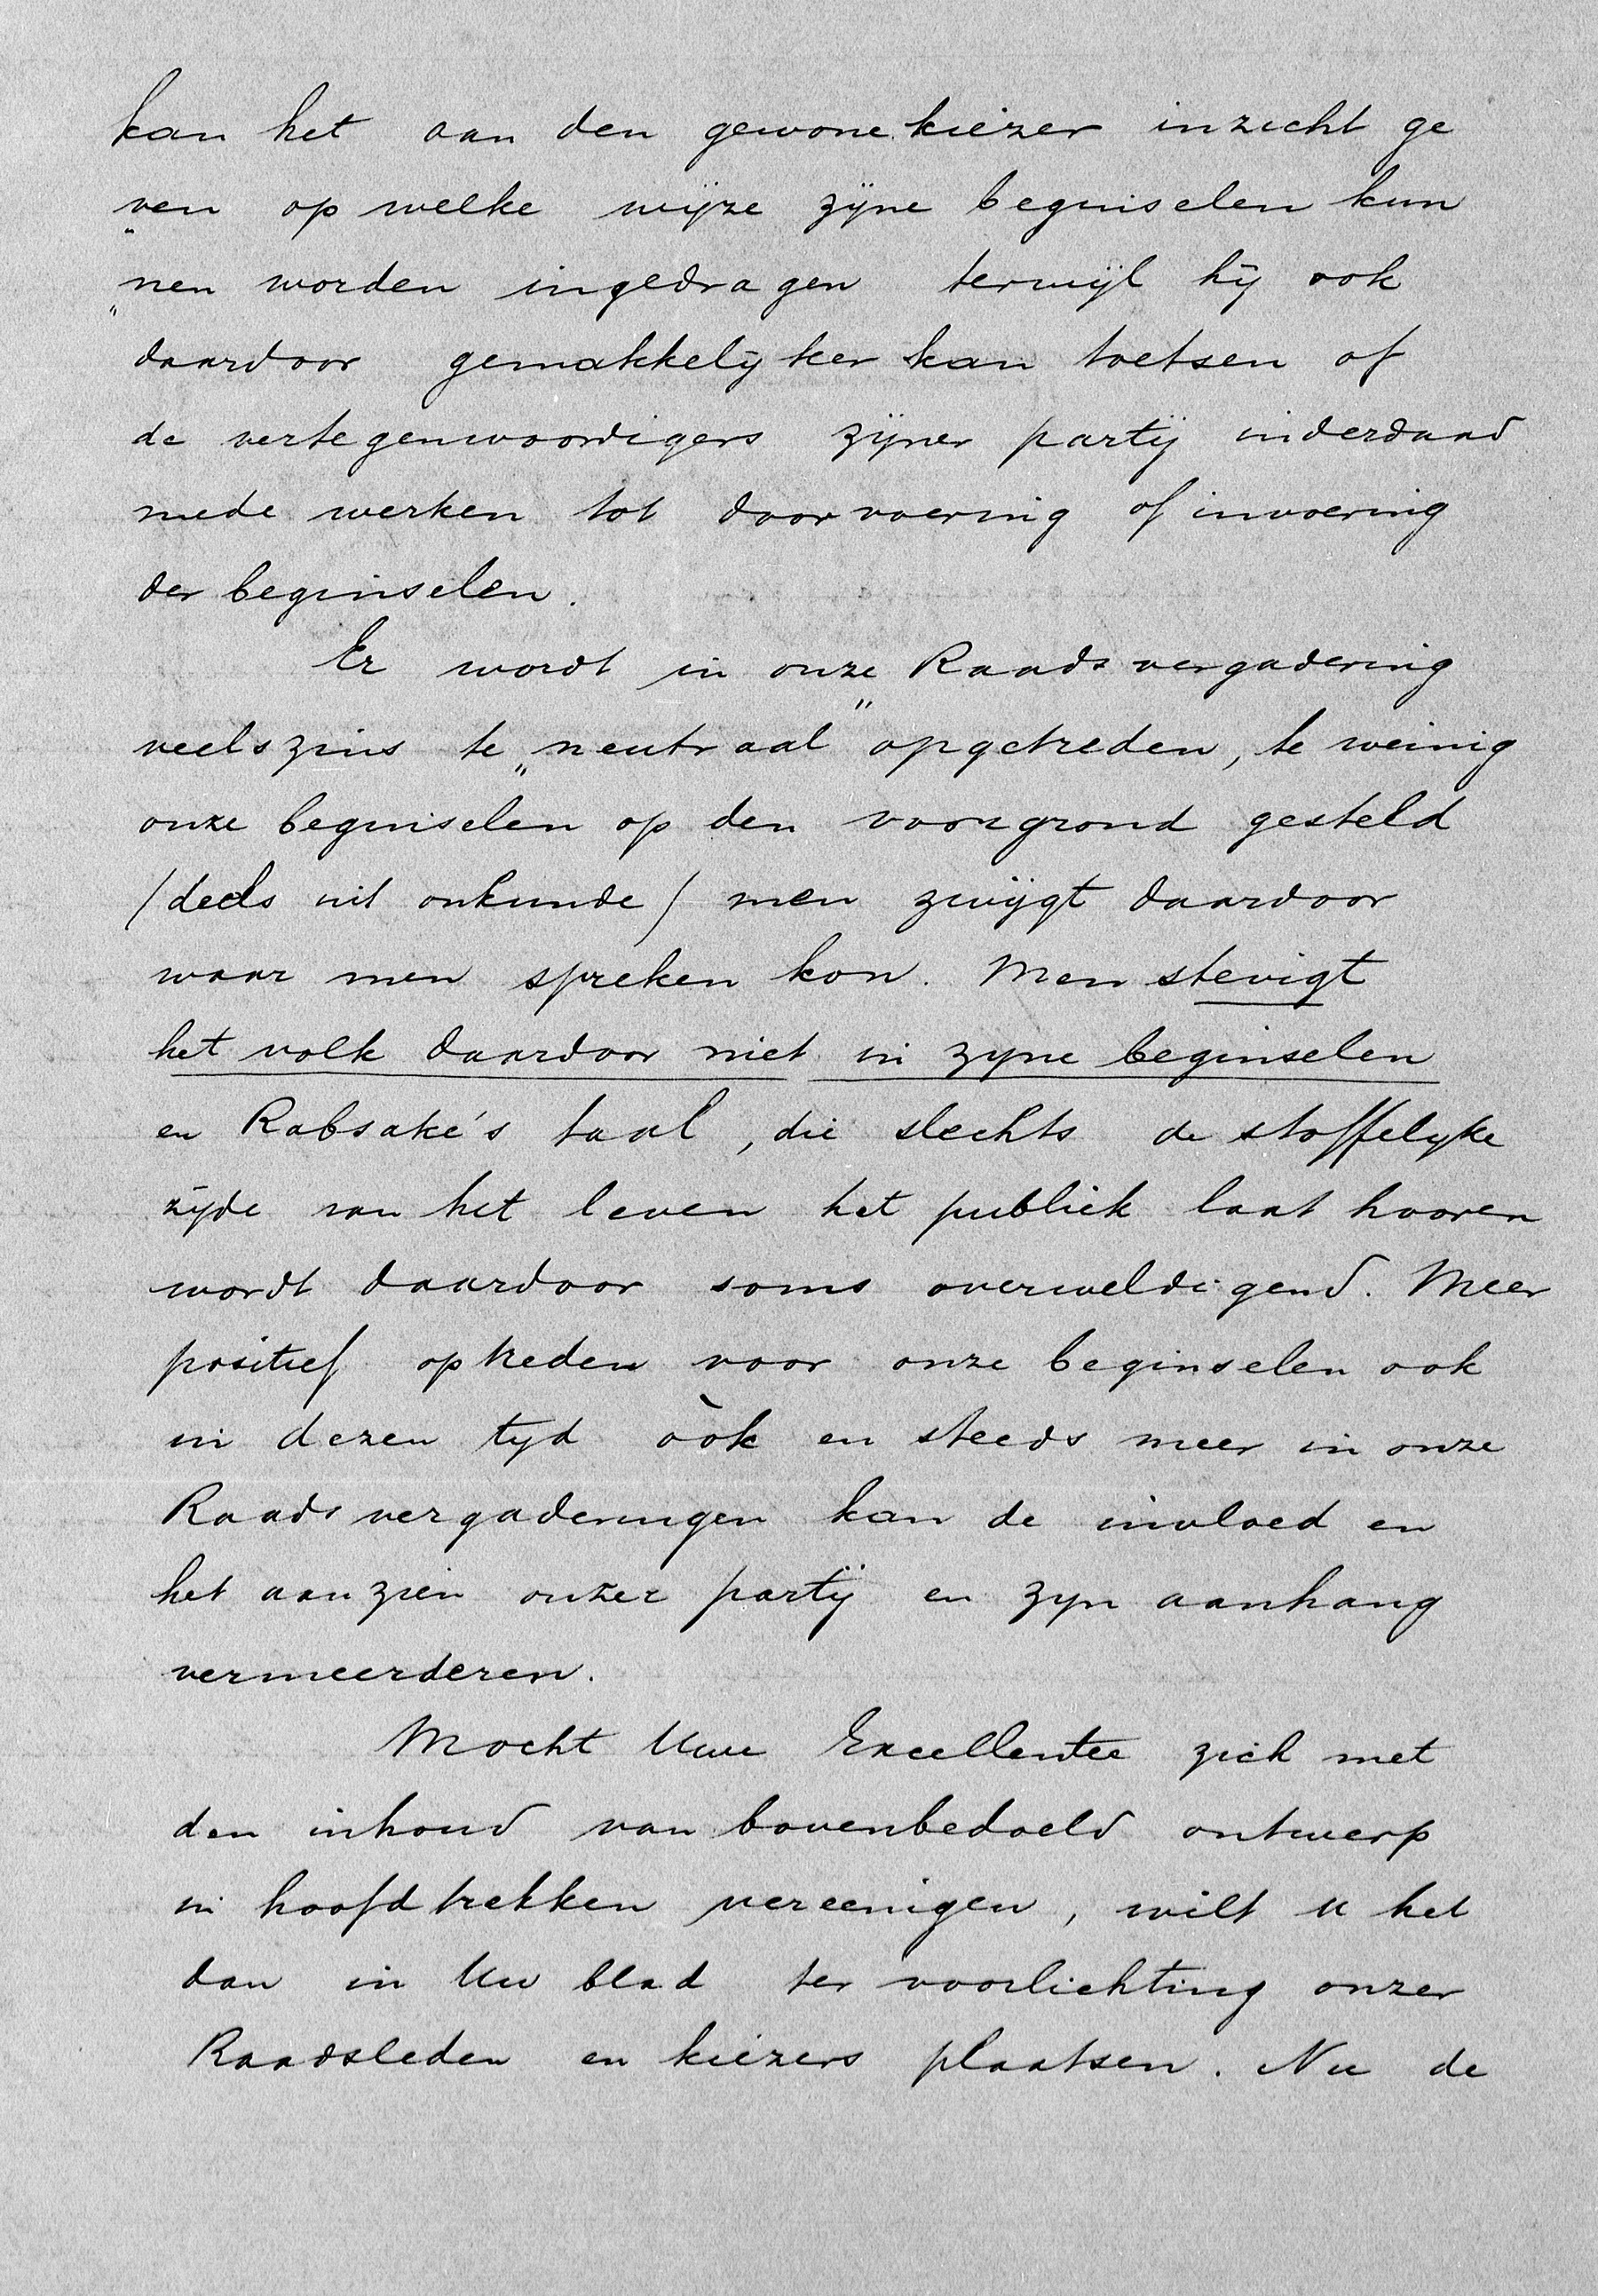 kan het aan den gewone kiezer inzicht ge
„ven op welke wijze zijne beginselen kun
„nen worden ingedragen terwijl hij ook
daardoor gemakkelijker kan toetsen of
de vertegenwoordigers zijner partij inderdaad
mede werken tot doorvoering of invoering
der beginselen.
Er wordt in onze Raadsvergadering
veelszins te „neutraal" opgetreden, te weinig
onze beginselen op den voorgrond gesteld
(deels uit onkunde) men zwijgt daardoor
waar men spreken kon. Men stevigt
het volk daardoor niet in zyne beginselen
en Rabsaké's taal, die slechts de stoffelyke
zijde van het leven het publiek laat hooren
wordt daardoor soms overweldigend. Meer
positief optreden voor onze beginselen ook
in dezen tyd òòk en steeds meer in onze
Raadsvergaderingen kan de invloed en
het aanzien onzer partij en zyn aanhang
vermeerderen.
Mocht Uwe Excellentee zich met
den inhoud van bovenbedoeld ontwerp
in hoofdtrekken vereenigen, wilt u het
dan in Uw blad ter voorlichting onzer
Raadsleden en kiezers plaatsen. Nu de